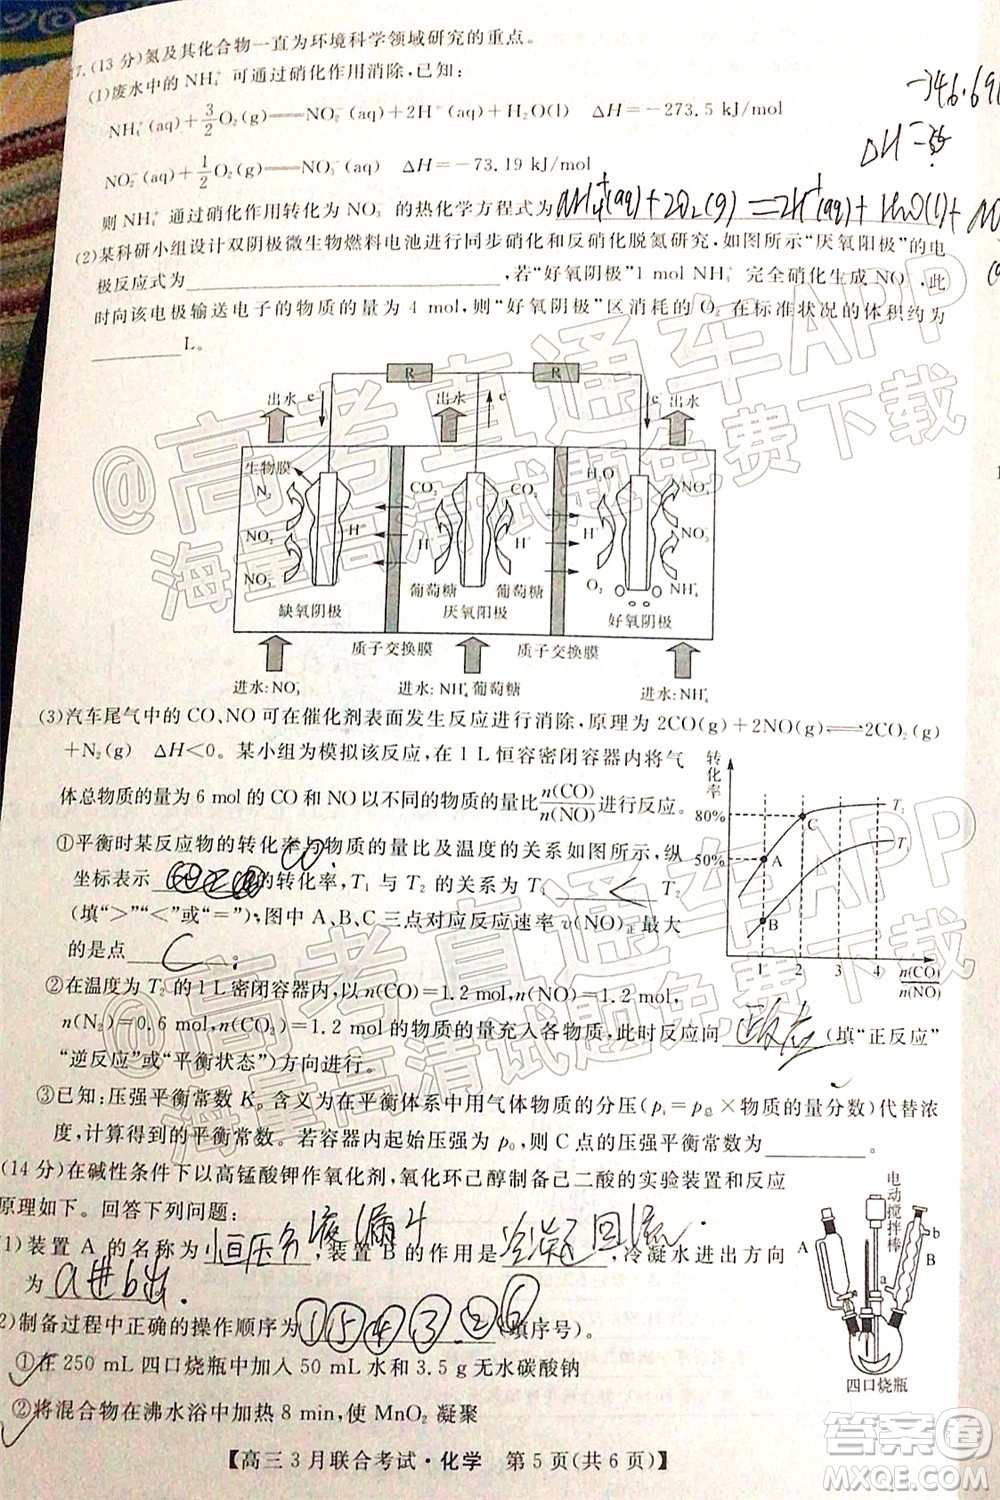 17.(13 分)氮及其化合物一直为环境科学领域研究的重点。
(1)废水中的 NH₄⁺ 可通过硝化作用消除,已知:
-346.69
NH₄⁺(aq)+3/2O₂(g)══NO₂⁻(aq)+2H⁺(aq)+H₂O(l)　ΔH=-273.5 kJ/mol
ΔH
NO₂⁻(aq)+1/2O₂(g)══NO₃⁻(aq)　ΔH=-73.19 kJ/mol
则 NH₄⁺ 通过硝化作用转化为 NO₃⁻ 的热化学方程式为 NH₄⁺(aq)+2O₂(g)=2H⁺(aq)+H₂O(l)+
(2)某科研小组设计双阴极微生物燃料电池进行同步硝化和反硝化脱氮研究,如图所示“厌氧阳极”的电
极反应式为________,若“好氧阴极”1 mol NH₄⁺ 完全硝化生成 NO₃⁻,此
时向该电极输送电子的物质的量为 4 mol,则“好氧阴极”区消耗的 O₂ 在标准状况的体积约为
________L。
R R
出水 e⁻ 出水 e⁻ e⁻ 出水
生物膜 N₂ NO₂⁻ NO₃⁻ H⁺ 缺氧阴极
CO₂ CO₂ H⁺ H⁺ 葡萄糖 葡萄糖 厌氧阳极
H₂O O₂ NO₃⁻ NO₂⁻ NH₄⁺ 好氧阴极
质子交换膜 质子交换膜
进水:NO₃⁻ 进水:NH₄⁺葡萄糖 进水:NH₄⁺
(3)汽车尾气中的 CO、NO 可在催化剂表面发生反应进行消除,原理为 2CO(g)+2NO(g)⇌2CO₂(g)
+N₂(g)　ΔH<0。某小组为模拟该反应,在 1 L 恒容密闭容器内将气
体总物质的量为 6 mol 的 CO 和 NO 以不同的物质的量比n(CO)/n(NO)进行反应。
①平衡时某反应物的转化率与物质的量比及温度的关系如图所示,纵
坐标表示________的转化率,T₁ 与 T₂ 的关系为 T₁ < T₂
(填“>”“<”或“=”),图中 A、B、C 三点对应反应速率 v(NO)正最大
的是点 C ;
转化率
80%
50%
A B C T₂ T₁
1 2 3 4 n(CO)/n(NO)
②在温度为 T₂ 的 1 L 密闭容器内,以 n(CO)=1.2 mol,n(NO)=1.2 mol,
n(N₂)=0.6 mol,n(CO₂)=1.2 mol 的物质的量充入各物质,此时反应向 正反应 (填“正反应”
“逆反应”或“平衡状态”)方向进行。
③已知:压强平衡常数 Kₚ 含义为在平衡体系中用气体物质的分压(pᵢ=p总×物质的量分数)代替浓
度,计算得到的平衡常数。若容器内起始压强为 p₀,则 C 点的压强平衡常数为________。
(14 分)在碱性条件下以高锰酸钾作氧化剂,氧化环己醇制备己二酸的实验装置和反应
原理如下。回答下列问题:
(1)装置 A 的名称为 恒压分液漏斗 ,装置 B 的作用是 冷凝回流 ,冷凝水进出方向
为 a进b出 .
(2)制备过程中正确的操作顺序为①⑤④③②⑥(填序号)。
①在 250 mL 四口烧瓶中加入 50 mL 水和 3.5 g 无水碳酸钠
②将混合物在沸水浴中加热 8 min,使 MnO₂ 凝聚
电动搅拌棒
A B a b
四口烧瓶
【高三 3 月联合考试·化学　第 5 页(共 6 页)】
@高考直通车APP
海量高清试题免费下载
@高考直通车APP
海量高清试题免费下载
答案圈
MXQE.COM